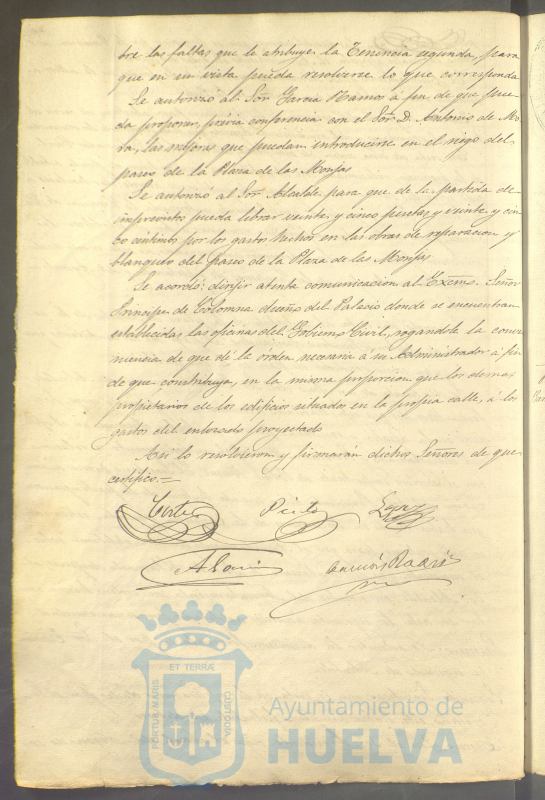 bre las faltas que le atribuye la Tenencia segunda, para
que en su vista pueda resolverse lo que corresponda
Se autorizó al Sor. Garcia Ramos á fin de que pue-
da proponer, prévia conferencia con el Sor. D. Antonio de Mo-
ra, las mejoras que puedan introducirse en el riego del
paseo de la Plaza de las Monjas
Se autorizó al Sor. Alcalde para que de la partida de
imprevistos pueda librar veinte y cinco pesetas y veinte y cin-
co céntimos por los gastos hechos en las obras de reparacion y
blanqueo del paseo de la Plaza de las Monjas
Se acordó: dirijir atenta comunicacion al Excmo. Señor
Principe de Colomna dueño del Palacio donde se encuentran
establecidas las oficinas del Gobierno Civil, rogandole la conve-
niencia de que dé la órden necesaria á su Administrador á fin
de que contribuya, en la misma proporcion que los demas
propietarios de los edificios situados en la propia calle, á los
gastos del enlosado proyectado
Asi lo resolvieron y firmarán dichos Señores de que
certifico.=
Pinto
A Garcia
PORTUS MARIS ET TERRÆ CUSTODIA
Ayuntamiento de
HUELVA